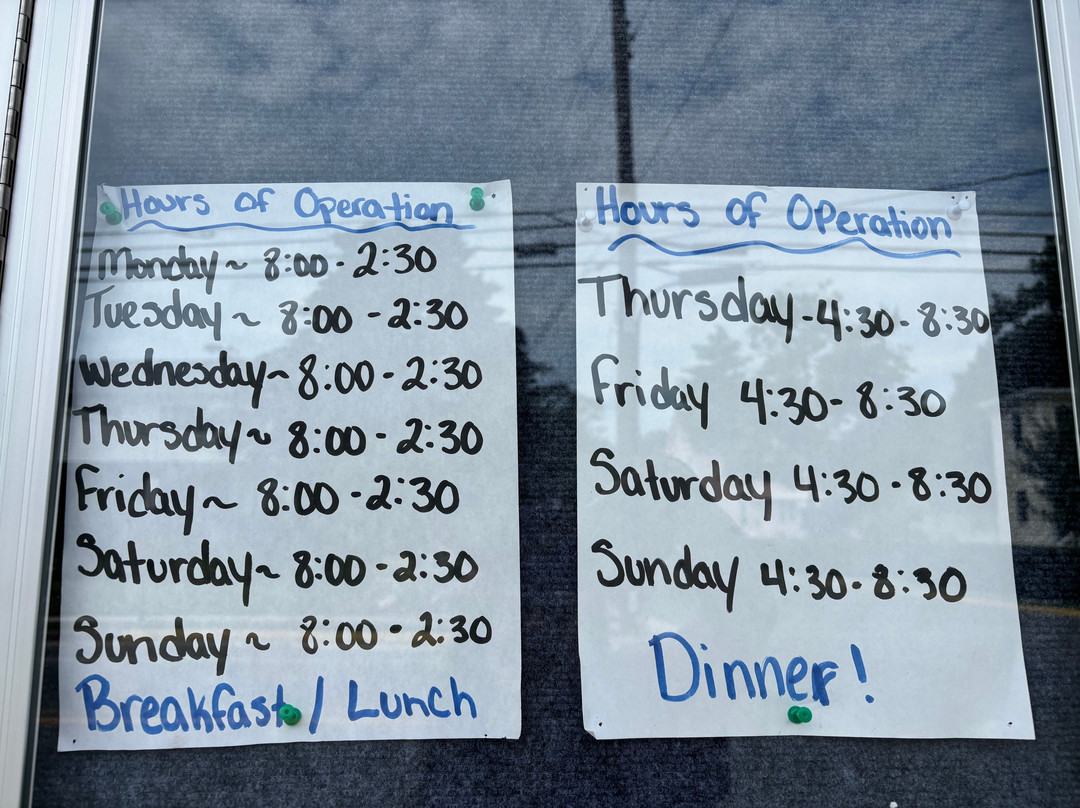 Hours of Operation
Monday ~ 8:00 - 2:30
Tuesday ~ 8:00 - 2:30
Wednesday ~ 8:00 - 2:30
Thursday ~ 8:00 - 2:30
Friday ~ 8:00 - 2:30
Saturday ~ 8:00 - 2:30
Sunday ~ 8:00 - 2:30
Breakfast / Lunch
Hours of Operation
Thursday - 4:30 - 8:30
Friday 4:30 - 8:30
Saturday 4:30 - 8:30
Sunday 4:30 - 8:30
Dinner!